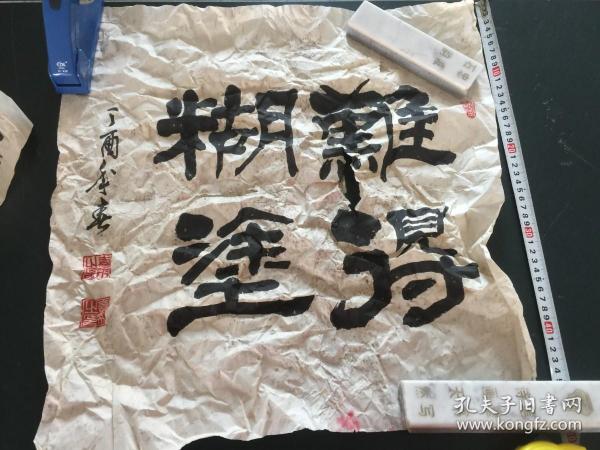 難得
糊塗
丁酉年春
孔夫子旧书网
www.kongfz.com